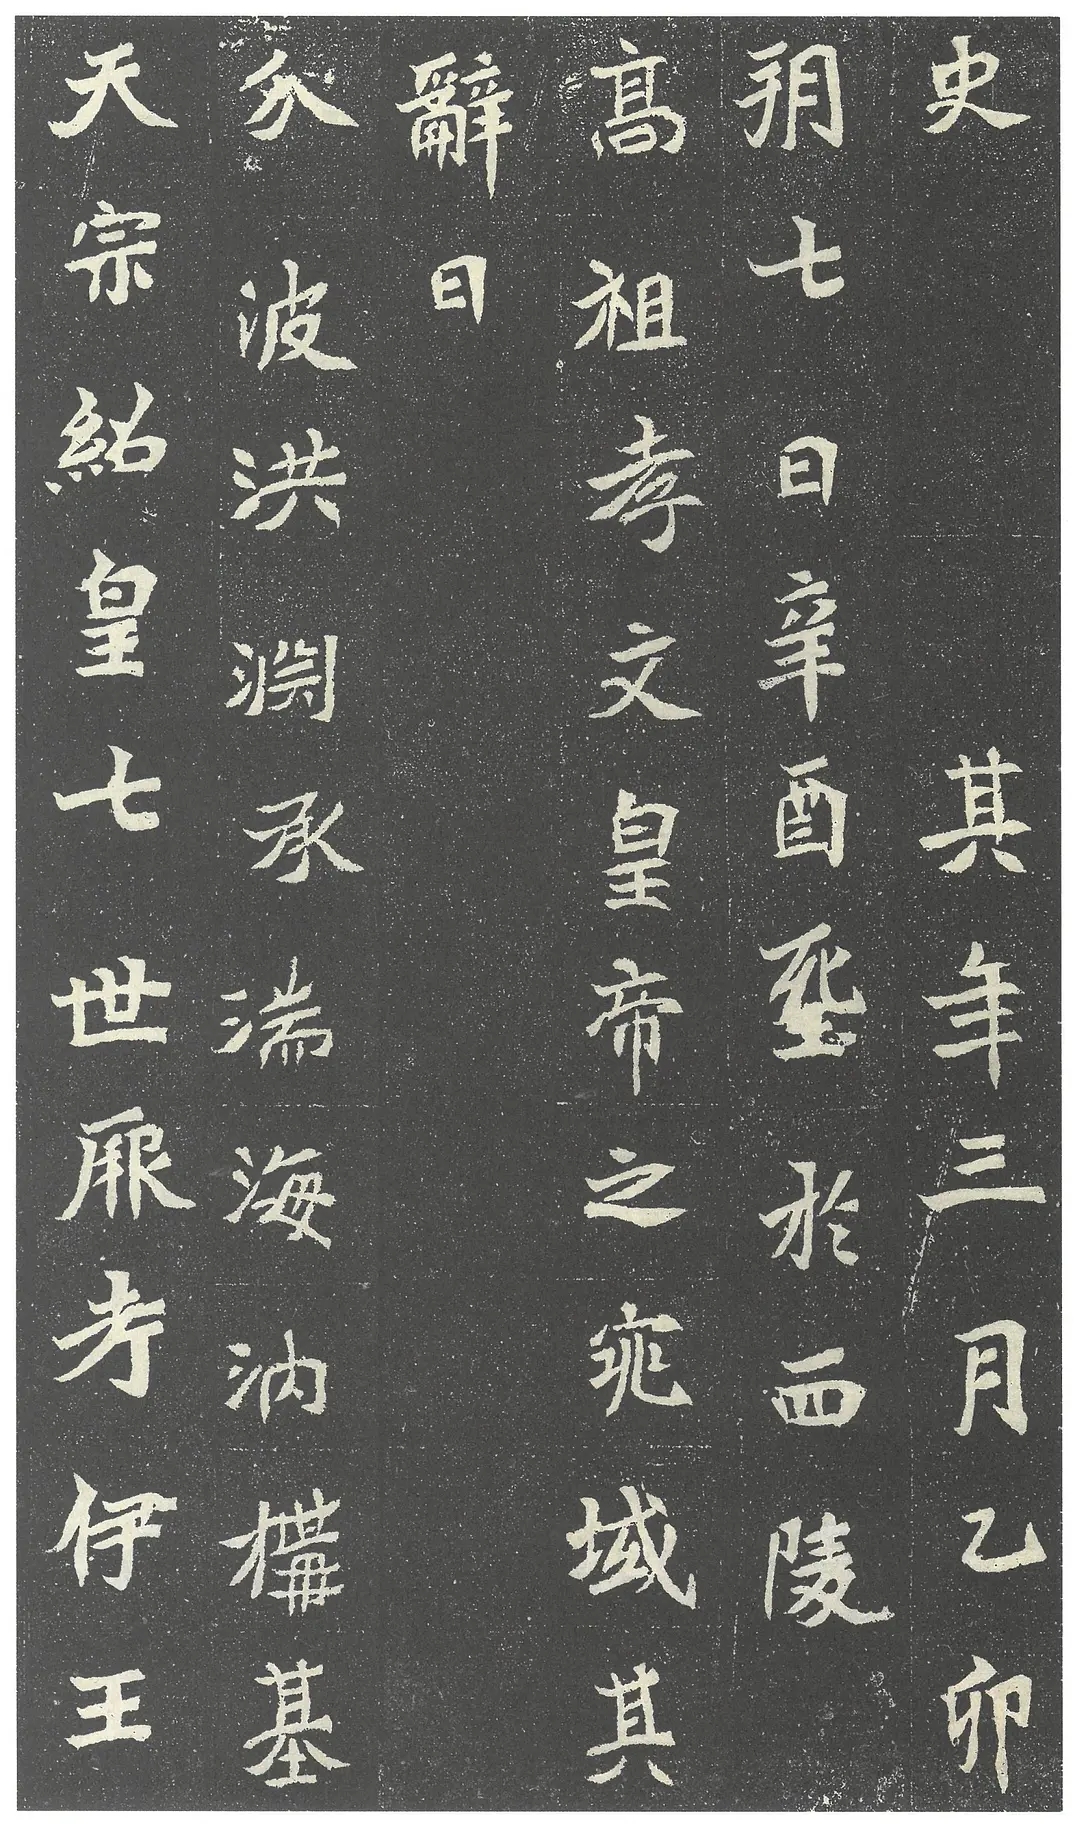 史其年三月乙卯
朔七日辛酉葬於西陵
高祖孝文皇帝之窕域其
辭曰
分波洪淵承湍海汭構基
天宗紹皇七世厥考伊王